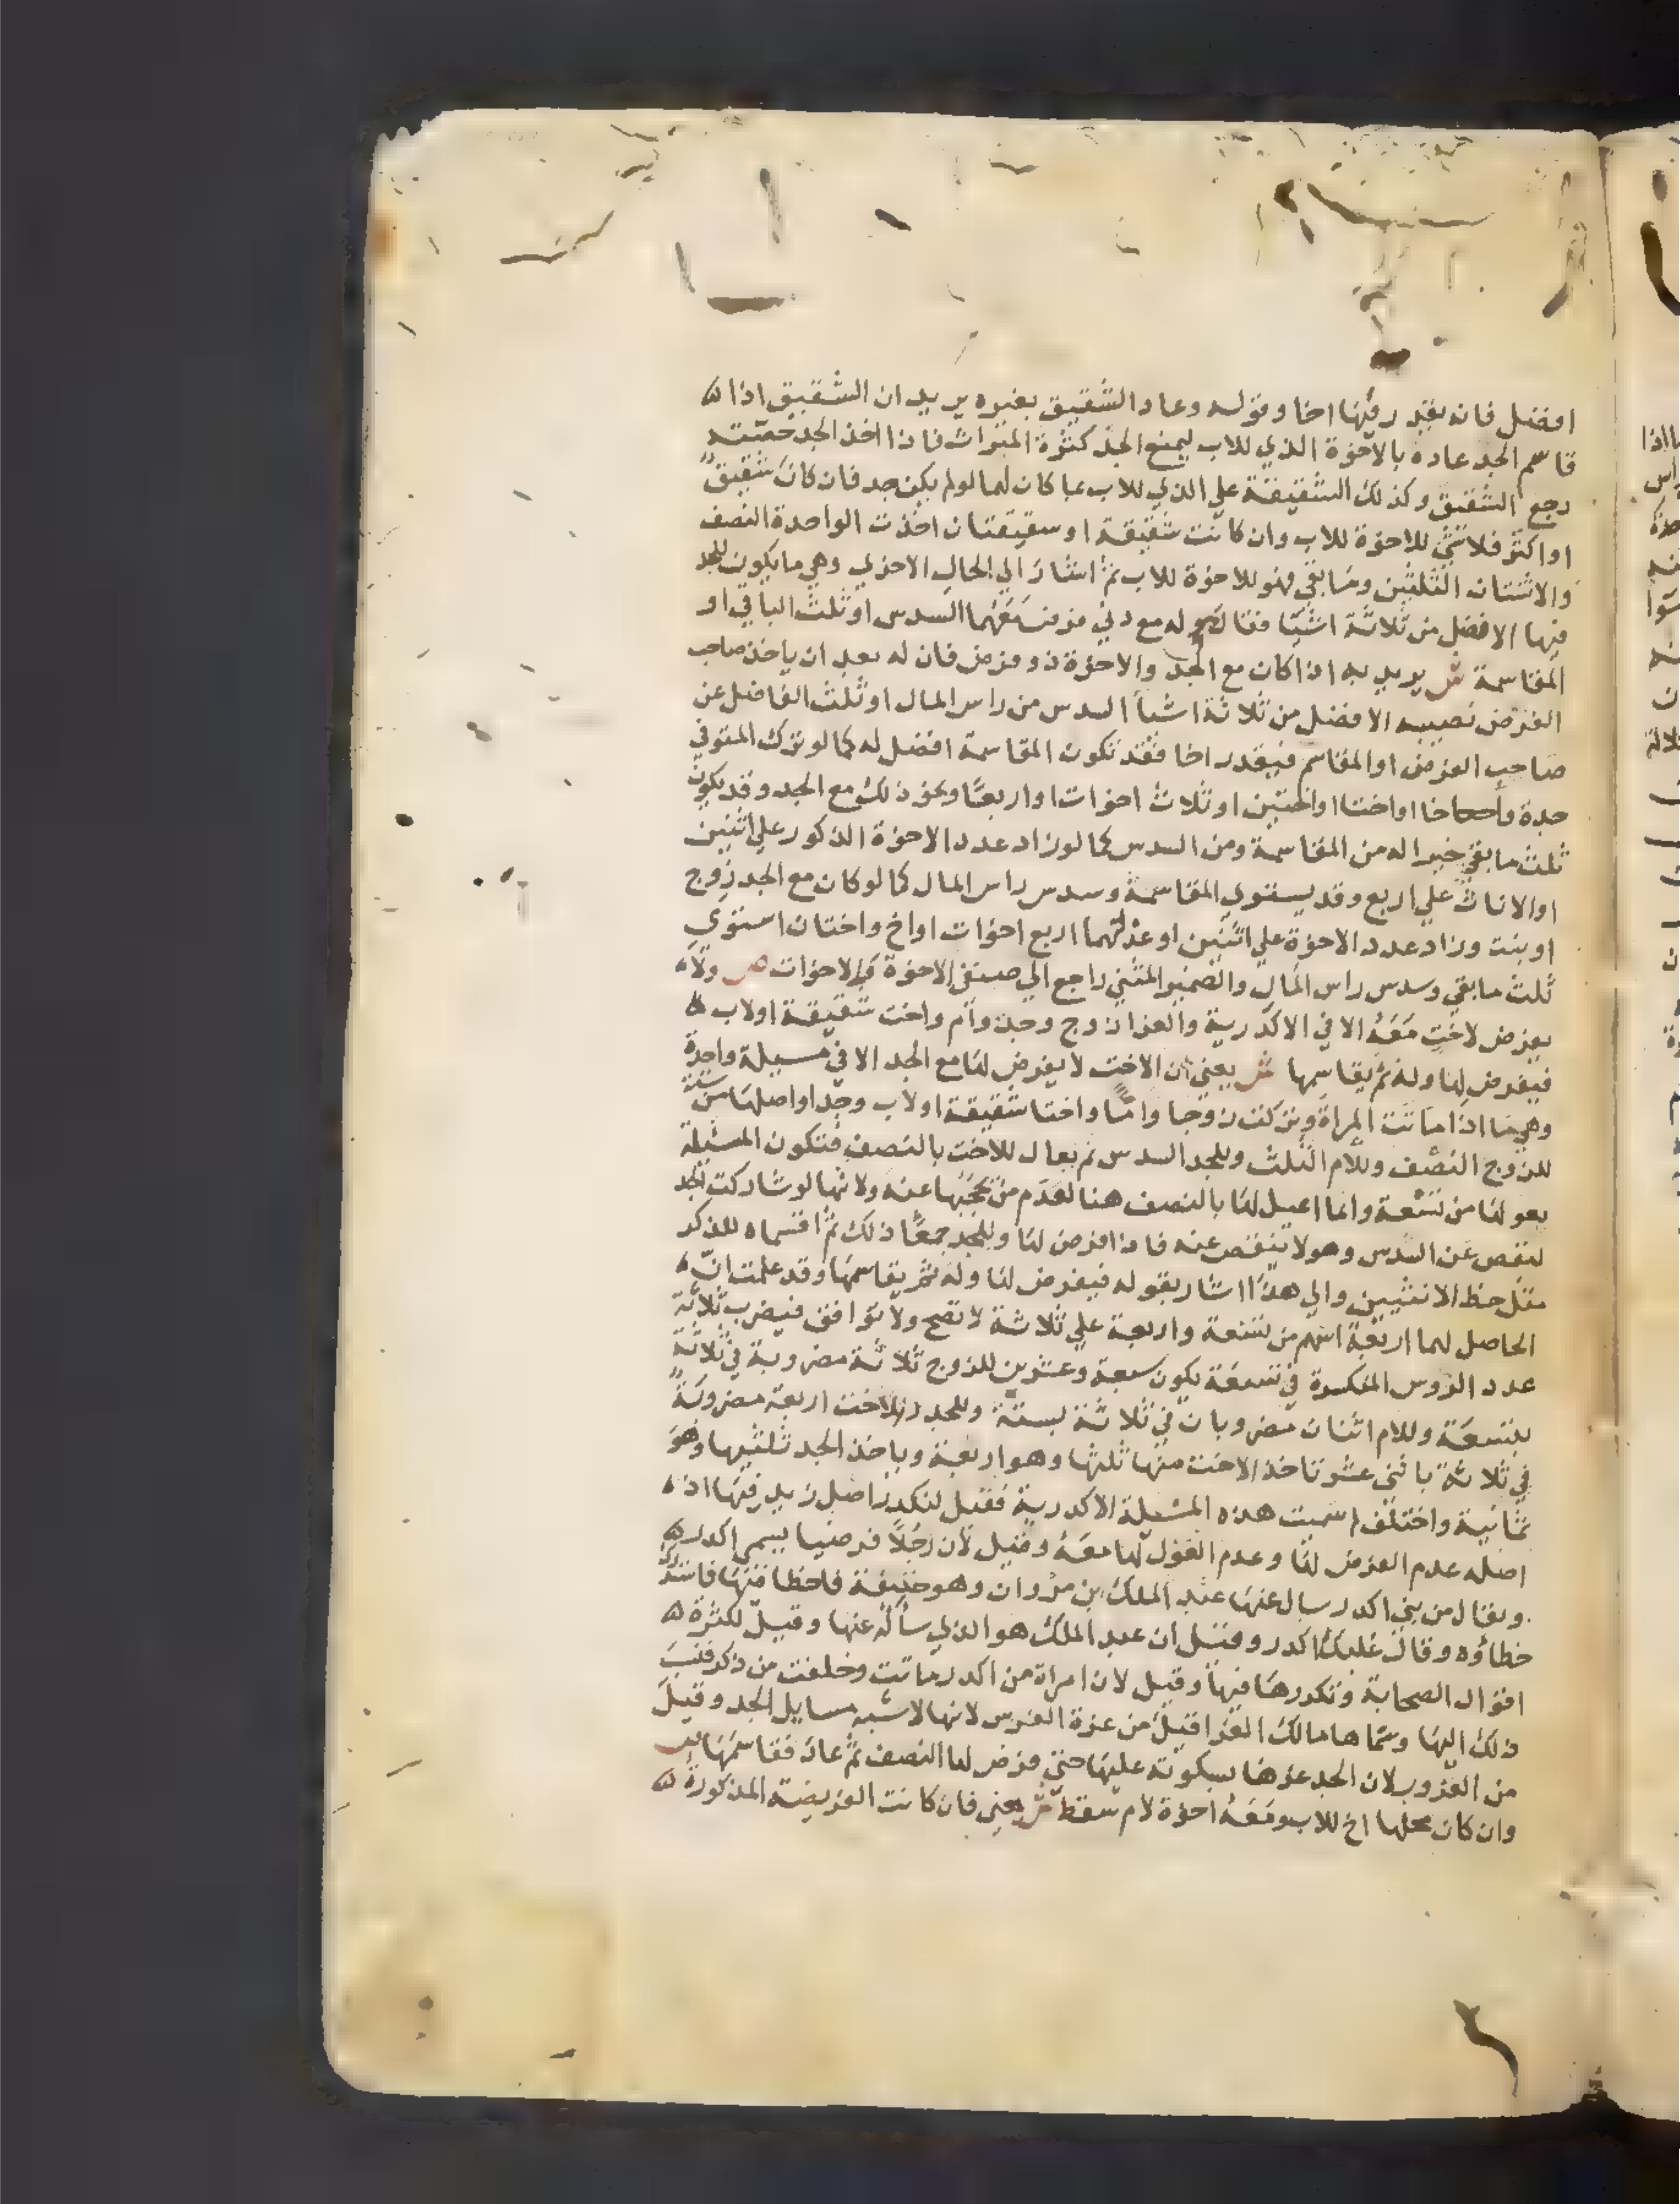 افضل فانه يقدر فيها اخا وقوله وعاد الشقيق بغيره يريد ان الشقيق اذا
قاسم الجد عاده بالاخوة الذي للاب ليمنع الجد كثرة الميراث فاذا اخذ الجد حصته
رجع الشقيق وكذلك الشقيقة علي الذي للاب عا كان لهما لو لم يكن جد فان كان شقيق
او اكثر فلا شي للاخوة للاب وان كانت شقيقة او شقيقتان اخذت الواحدة النصف
والاثنتان الثلثين وما بقي فهو للاخوة للاب ثم اشار الي الحال الاخري وهي ما يكون للجد
فيها الافضل من ثلاثة اشيا فقال وله مع ذي فرض معهما السدس او ثلث الباقي او
المقاسمة ش يريد به اذا كان مع الجد والاخوة ذو فرض فان له بعد ان ياخذ صاحب
الفرض نصيبه الافضل من ثلاثة اشيا السدس من راس المال او ثلث الفاضل عن
صاحب الفرض او المقاسم فيقدر اخا فقد تكون المقاسمة افضل له كما لو ترك المتوفي
جدة واخا او اختا او اختين او ثلاث اخوات او اربعا ونحو ذلك مع الجد وقد يكون
ثلث ما بقي خيرا له من المقاسمة ومن السدس كما لو زاد عدد الاخوة الذكور علي اثنين
او الاناث علي اربع وقد يستوي المقاسمة وسدس راس المال كما لو كان مع الجد زوج
او بنت وزاد عدد الاخوة علي اثنين او عدلهما اربع اخوات او اخ واختان استوي
ثلث ما بقي وسدس راس المال والضمير المثني راجع الي صنفي الاخوة والاخوات ص ولا
يفرض لاخت معه الا في الاكدرية والغرا زوج وجد وام واخت شقيقة او لاب
فيفرض لها وله ثم يقاسمها ش يعني ان الاخت لا يفرض لها مع الجد الا في مسيلة واحدة
وهي ما اذا ماتت المراة وتركت زوجا واما واختا شقيقة او لاب وجدا واصلها من ستة
للزوج النصف وللام الثلث وللجد السدس ثم يعال للاخت بالنصف فتكون المسيلة
بعولها من تسعة وانما اعيل لها بالنصف هنا لعدم من يحجبها عنه ولانها لو شاركت الجد
لنقص عن السدس وهو لا ينقص عنه فاذا فرض لها وللجد جمعا ذلك ثم اقتسماه للذكر
مثل حظ الانثيين والي هذا اشار بقوله فيفرض لها وله ثم يقاسمها وقد علمت ان
الحاصل لهما اربعة اسهم من تسعة واربعة علي ثلاثة لا تصح ولا توافق فيضرب ثلاثة
عدد الروس المنكسرة في تسعة يكون سبعة وعشرين للزوج ثلاثة مضروبة في ثلاثة
بتسعة وللام اثنان مضروبان في ثلاثة بستة وللجد والاخت اربعة مضروبة
في ثلاثة باثني عشر تاخذ الاخت منها ثلثها وهو اربعة وياخذ الجد ثلثيها وهو
ثمانية واختلف لم سميت هذه المسيلة الاكدرية فقيل لتكدر اصل زيد فيها اذ
اصله عدم الفرض لها وعدم العول لها معه وقيل لان رجلا فرضيا يسمي اكدر
ويقال من بني اكدر سال عنها عبد الملك بن مروان وهو خليفة فاخطا فيها فاستدرك
خطاؤه وقال غلبك اكدر وقيل ان عبد الملك هو الذي سأله عنها وقيل لكثرة
اقوال الصحابة وتكدرها فيها وقيل لان امراة من اكدر ماتت وخلفت من ذكر فنسب
ذلك اليها وسماها مالك الغرا قيل من غرة الفرس لانها لا شبه مسايل الجد وقيل
من الغرور لان الجد غرها بسكوته عليها حتي فرض لها النصف ثم عاد فقاسمها ص
وان كان محلها اخ للاب ومعه اخوة لام سقط ش يعني فان كانت الفريضة المذكورة